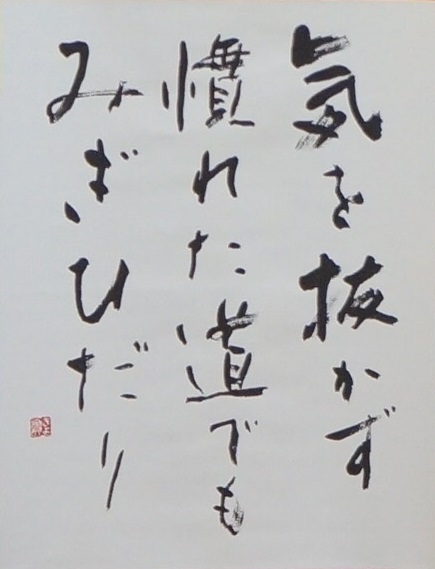 気を抜かず
慣れた道でも
みぎひだり